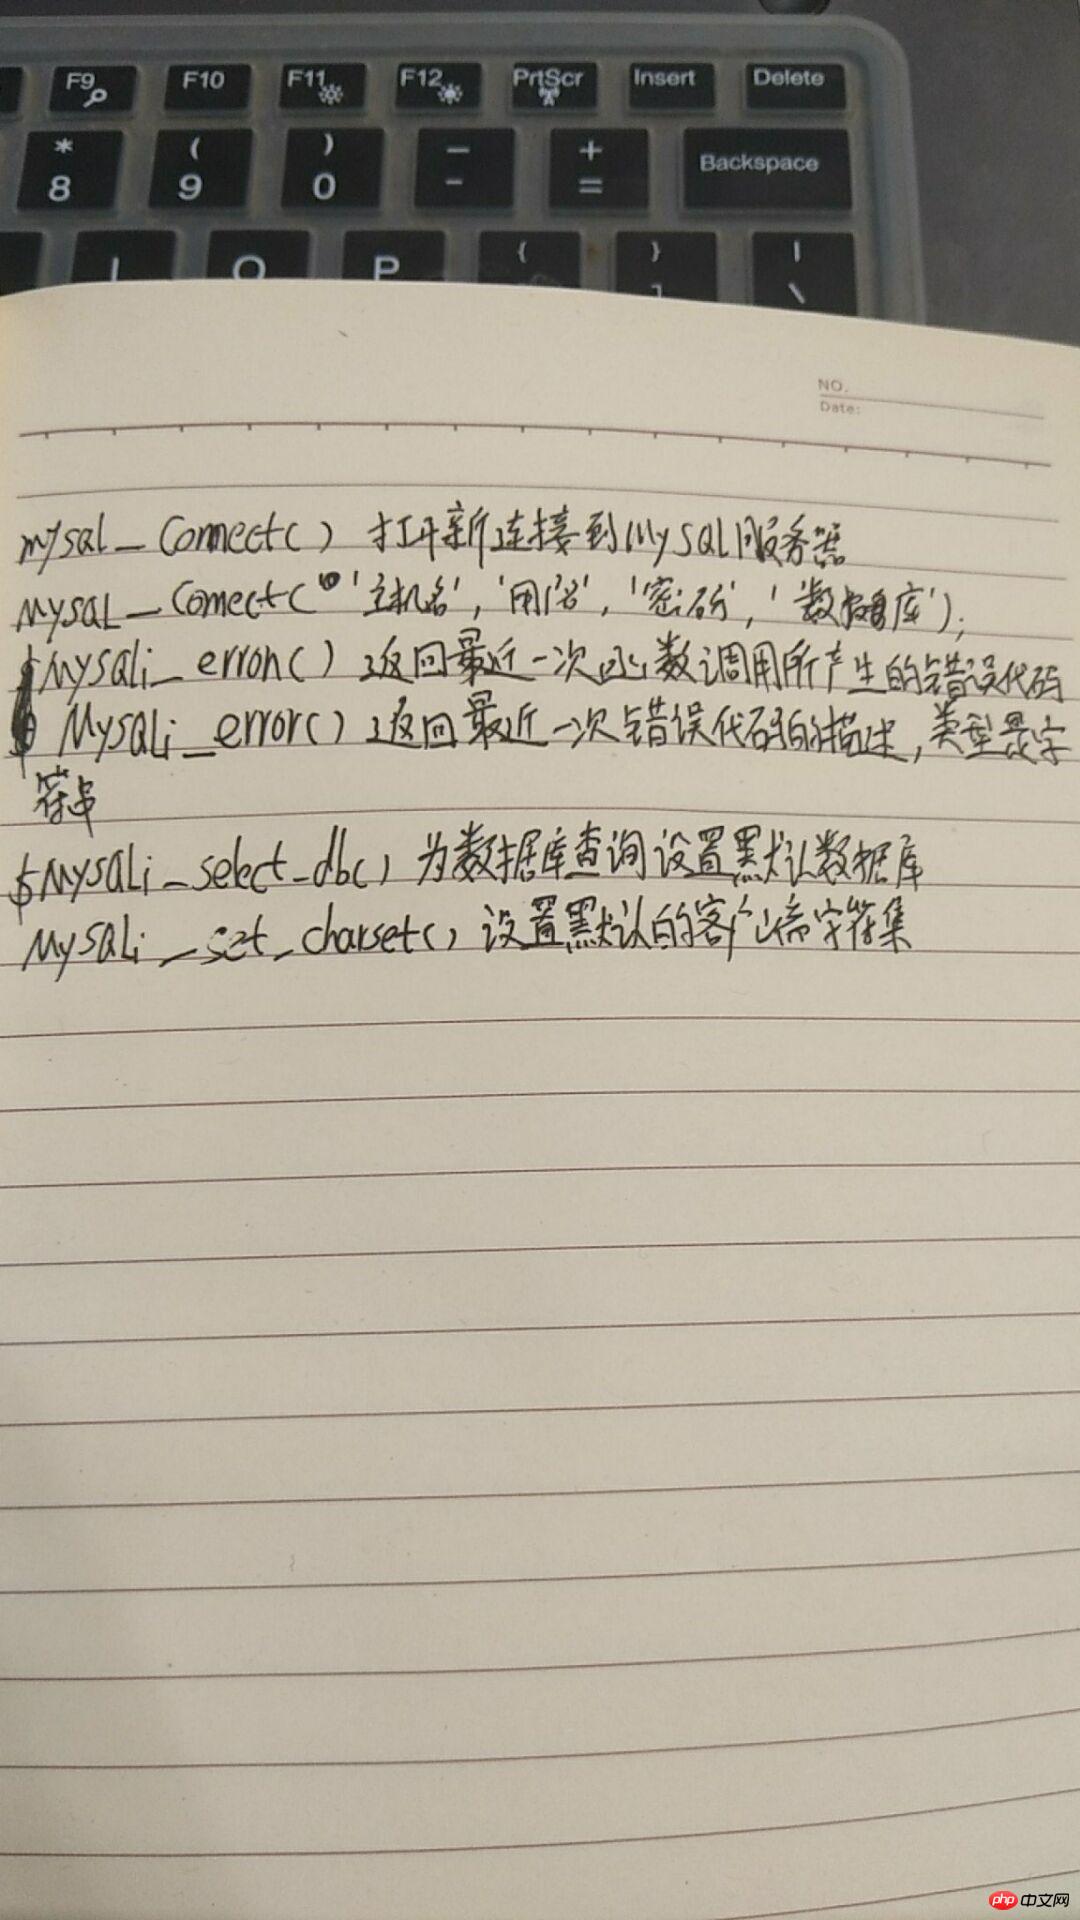 F9 F10 F11 F12 PrtScr Insert Delete
* 8 ( 9 ) 0 — - + = Backspace
I O P { } ] | \
NO.
Date:
mysql_Connect() 打开新连接到MySQL服务器
MySQL_Connect('主机名', '用户名', '密码', '数据库');
MySQLi_erron() 返回最近一次函数调用所产生的错误代码
MySQLi_error() 返回最近一次错误代码的描述, 类型是字
符串
$MySQLi_select_db() 为数据库查询设置默认数据库
MySQLi_set_charset() 设置默认的客户端字符集
php 中文网